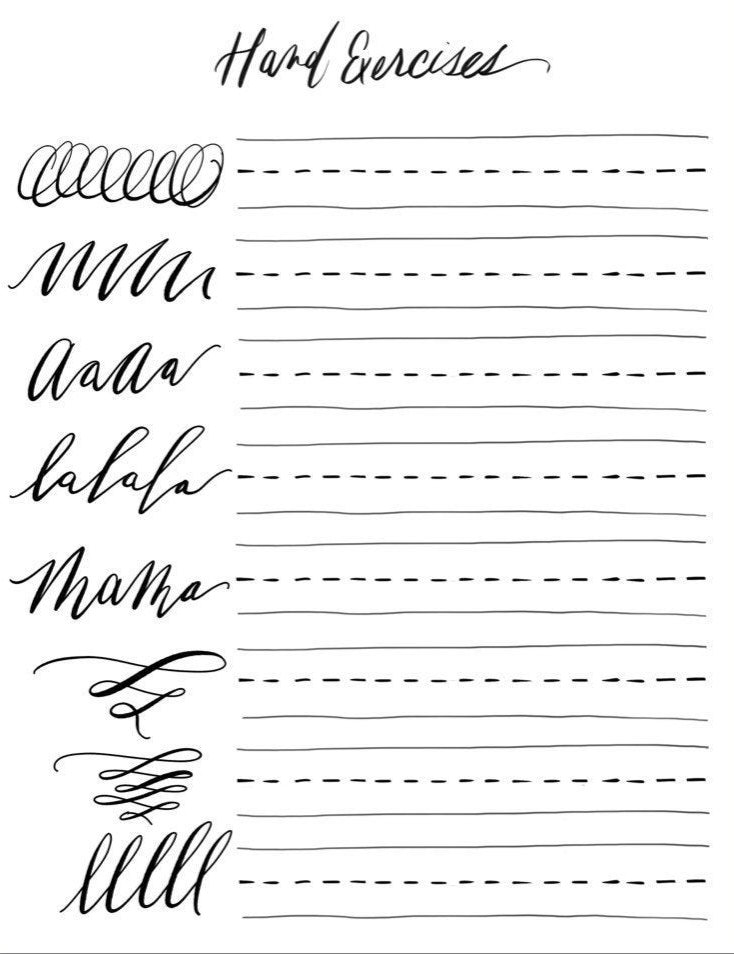 Hand Exercises
AaAa
lalala
mama
lllll